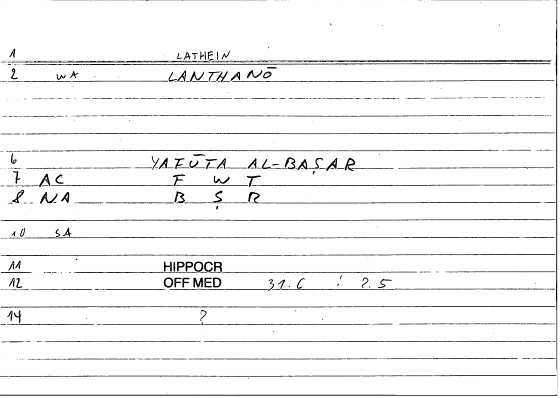 1 LATHEIN
2 WA LANTHANŌ
6 YAFŪTA AL-BAṢAR
7 AC F W T
8 NA B Ṣ R
10 SA
11 HIPPOCR
12 OFF MED 31.6 : ?.5
14 ?